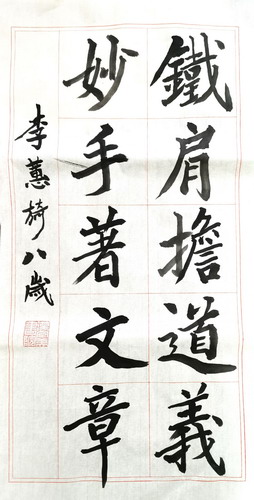 鐵肩擔道義
妙手著文章
李蕙旖八歲